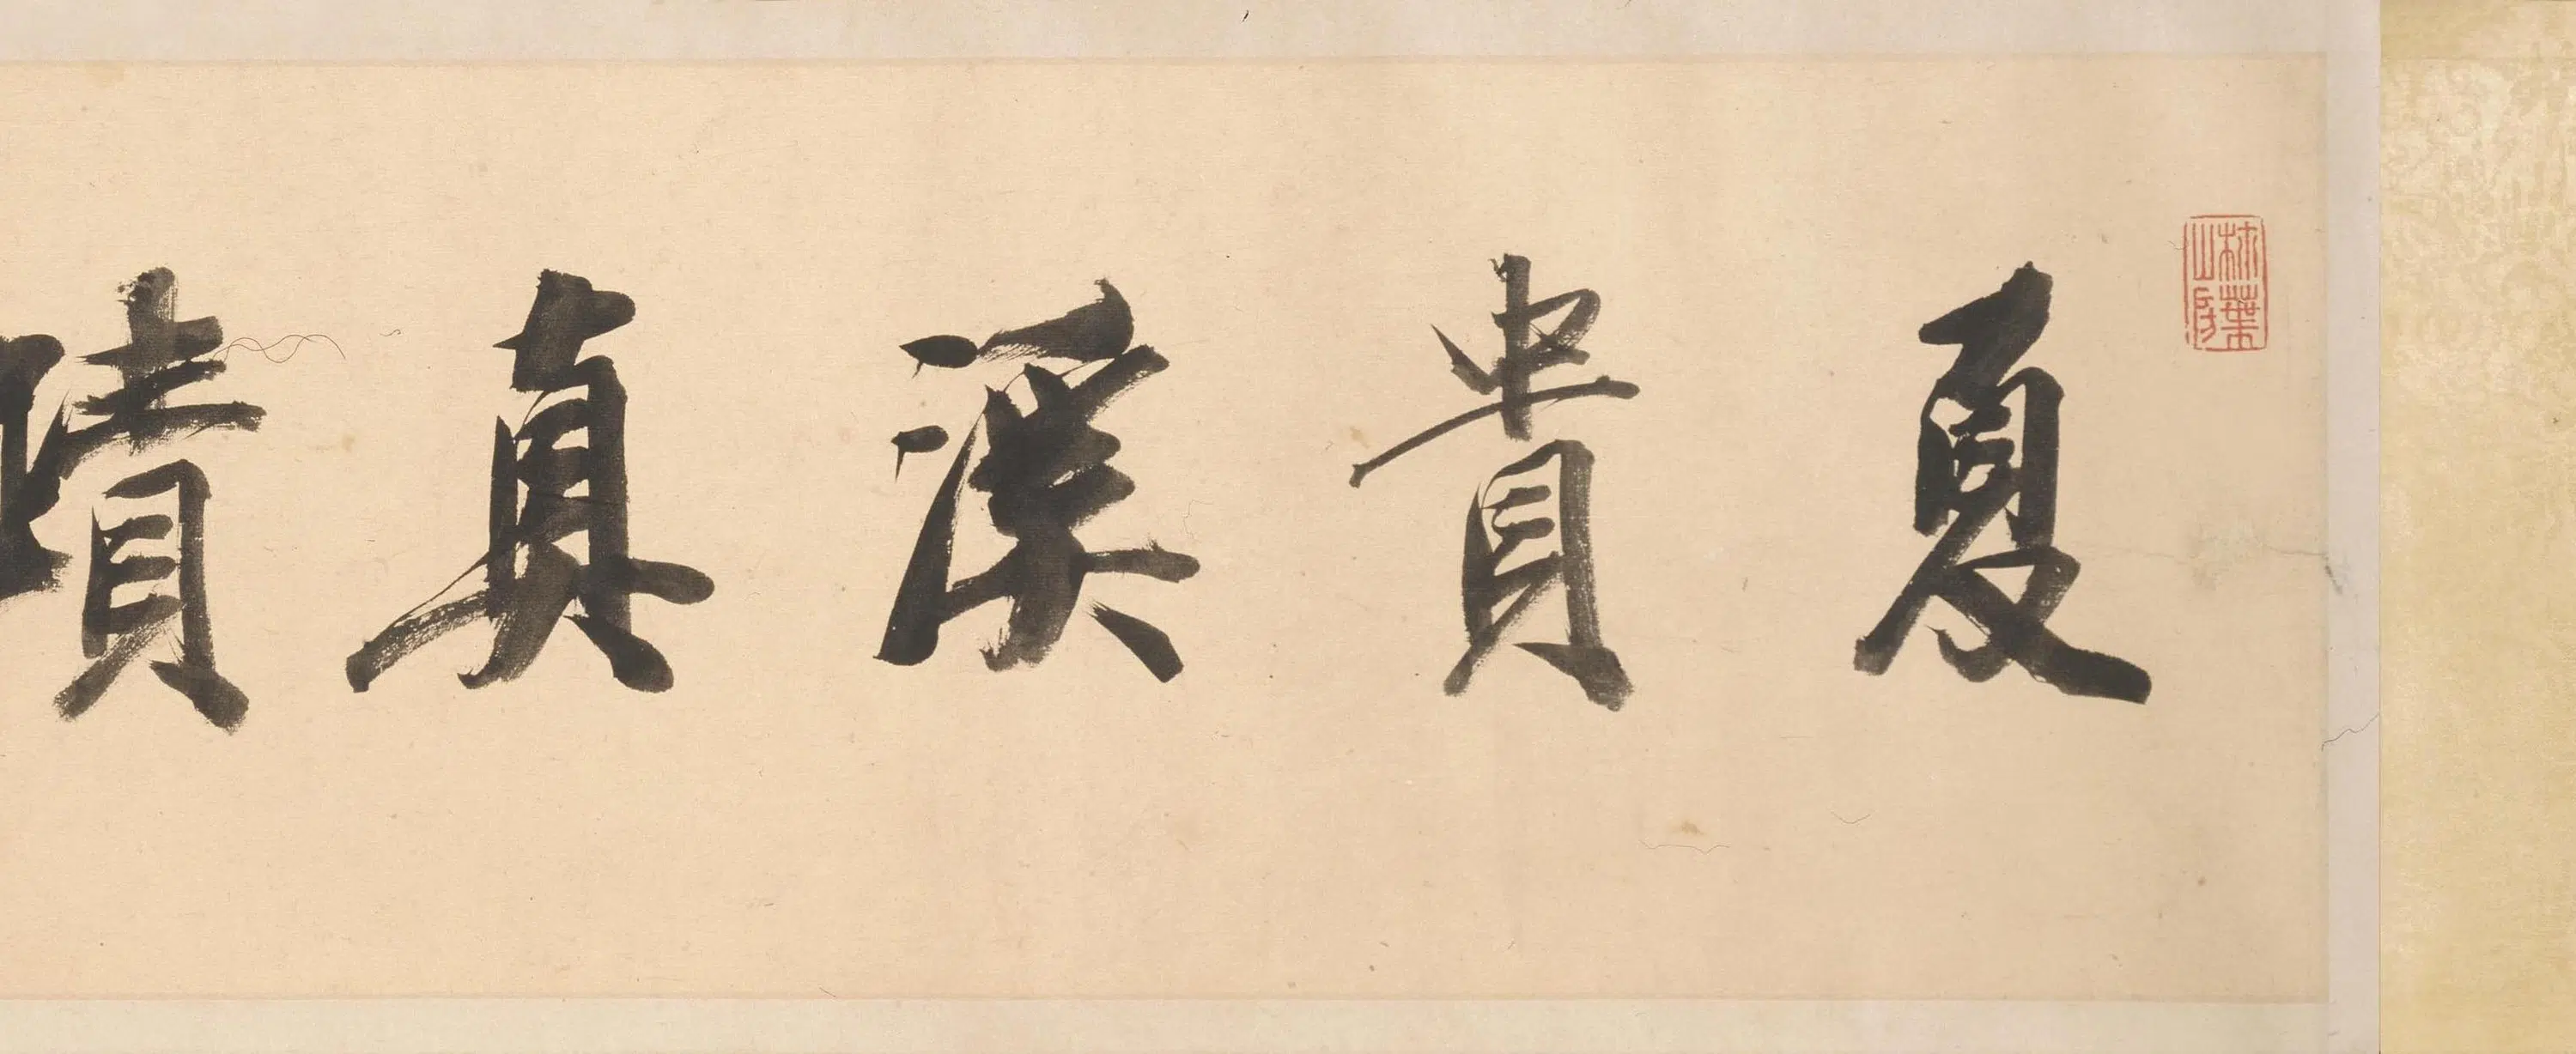 葉山房
夏貴溪真蹟